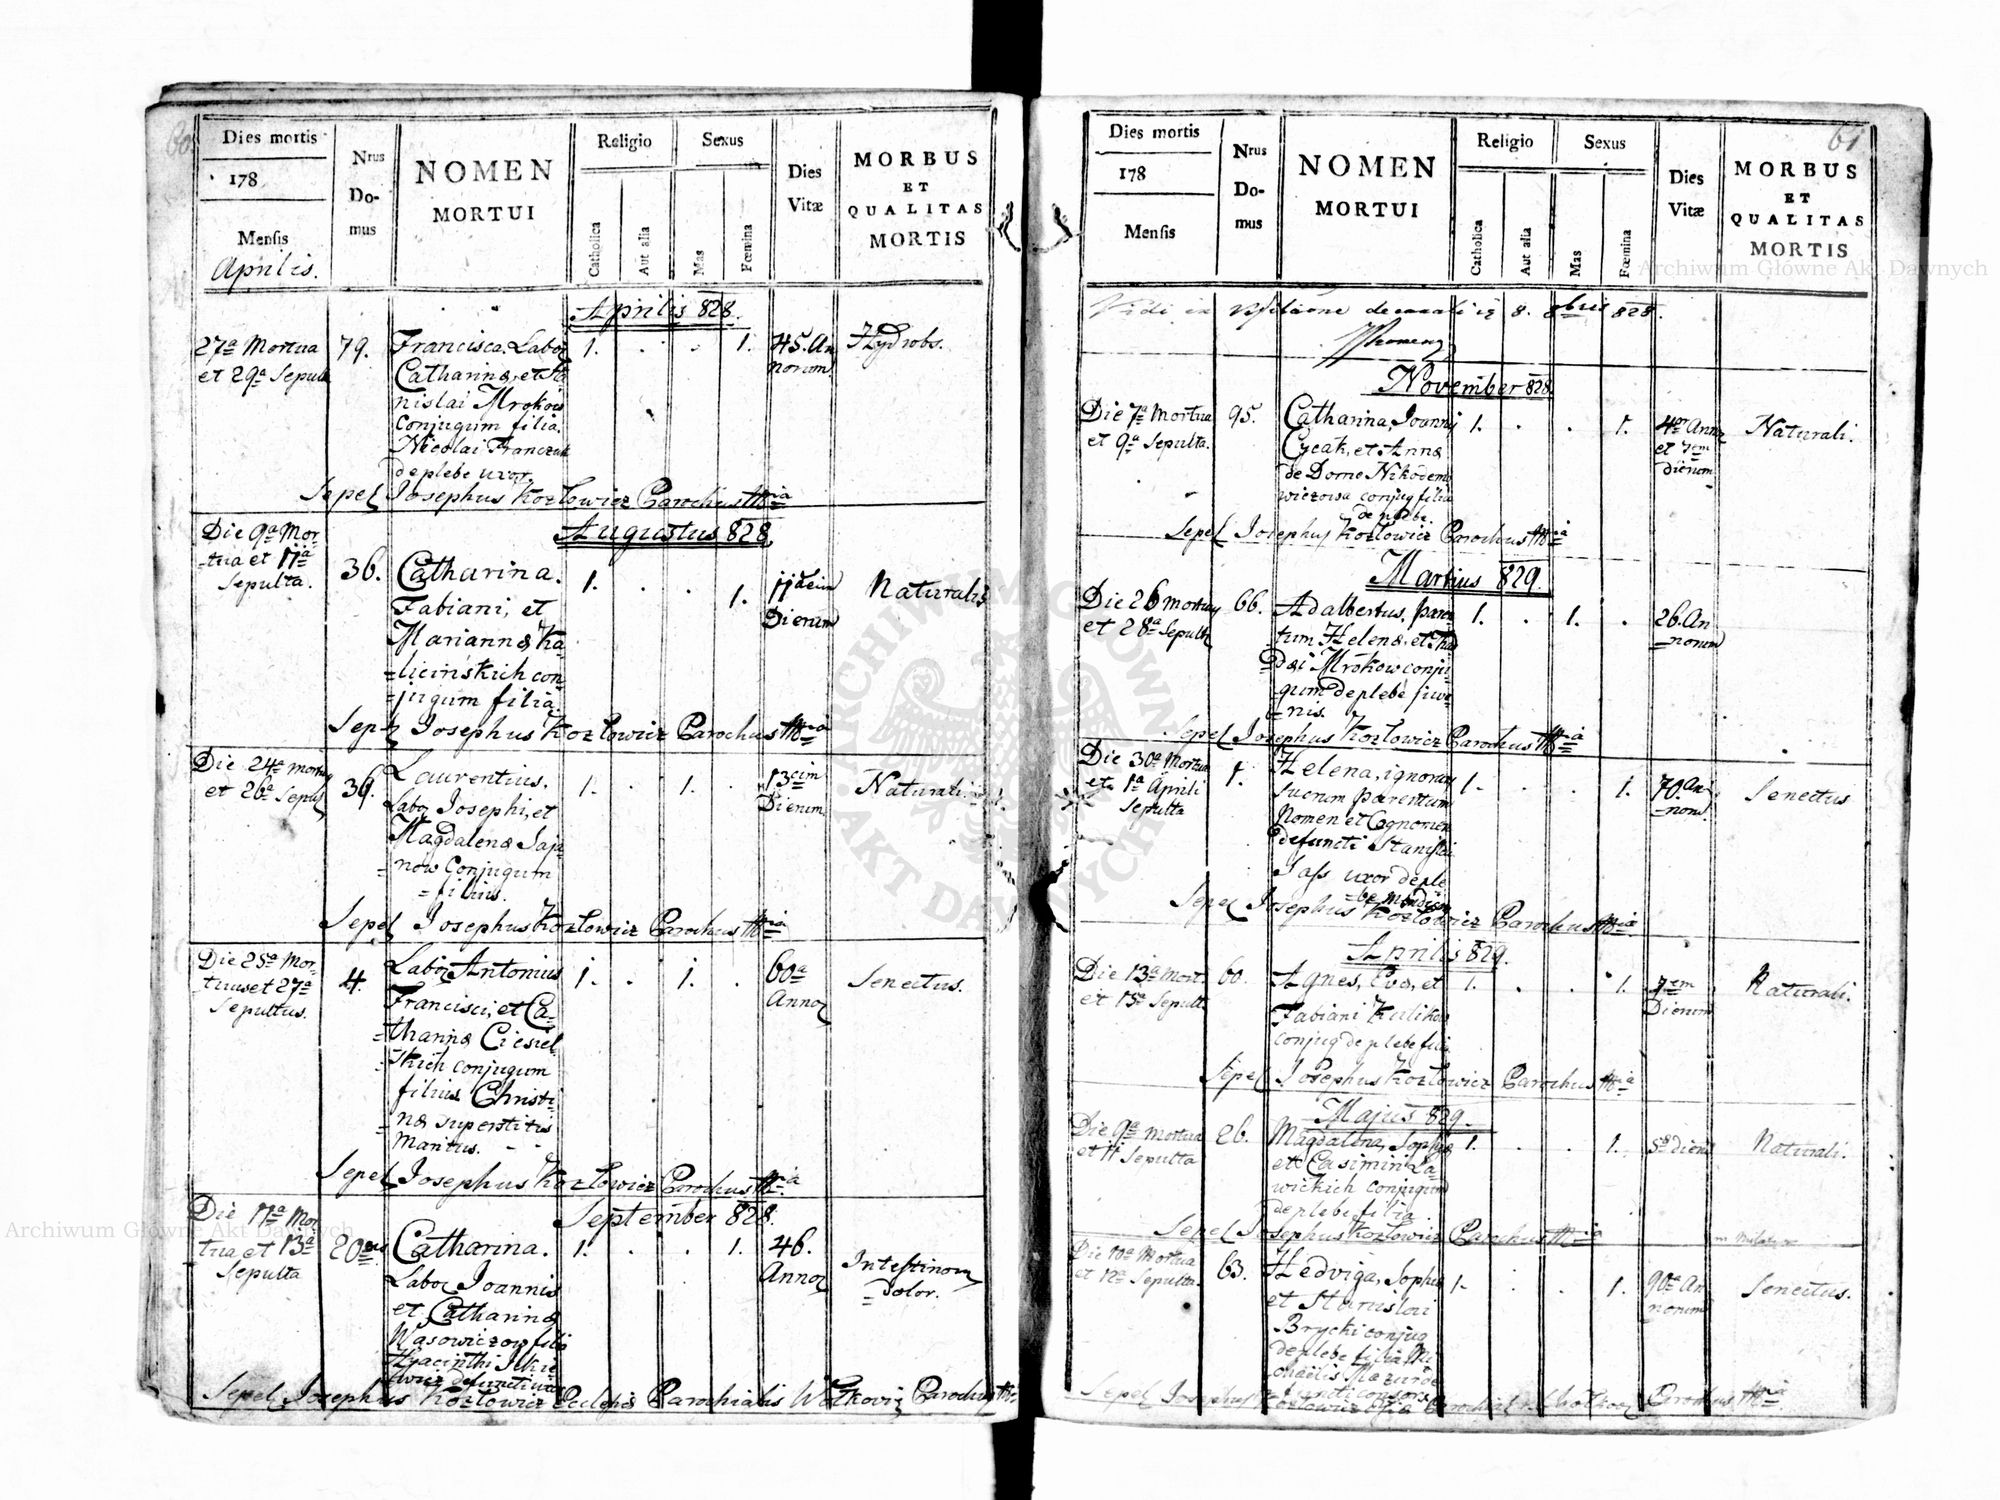 60
Dies mortis
178
Mensis
Aprilis.
Nrus
Do-
mus
NOMEN
MORTUI
Religio
Catholica
Aut alia
Sexus
Mas
Fœmina
Dies
Vitæ
MORBUS
ET
QUALITAS
MORTIS
Aprilis 828.
27ª Mortua
et 29ª Sepult
79.
Francisca Labor
Catharinæ, et Sta
nislai Mrokow
Conjugum filia.
Nicolai Franczuk
de plebe uxor.
1. . . 1.
45. An
norum
Hydrobs.
Sepel Josephus Kozlowicz Parochus
Augustus 828
Die 9ª Mor-
tua et 11ª
Sepulta.
36.
Catharina.
Fabiani, et
Mariannæ Ka-
licinskich con-
jugum filia.
1. . . 1.
11
Dierum
Naturalis
Sepel Josephus Kozlowicz Parochus
Die 24ª mortuus
et 26ª Sepul
36.
Laurentius,
Labor Josephi, et
Magdalenæ Saja-
now Conjugum
filius.
1. . 1. .
13cim
Dierum
Naturali.
Sepel Josephus Kozlowicz Parochus
Die 25ª Mor-
tuus et 27ª
Sepultus.
4.
Labor Antonius
Francisci, et Ca-
tharinæ Ciesiel-
skich conjugum
filius Christi-
næ superstitis
Maritus.
1. . 1. .
60ª
Annor
Senectus.
Sepel Josephus Kozlowicz Parochus
September 828.
Die 11ª Mor
tua et 13ª
Sepulta
20
Catharina.
Labor Joannis
et Catharinæ
Wąsowiczow filia
Hyacinthi
defuncti uxor
1. . . 1.
46.
Annor
Intestinorum
Dolor.
Sepel Josephus Kozlowicz Eclesiæ Parochialis Parochus
61
Dies mortis
178
Mensis
Nrus
Do-
mus
NOMEN
MORTUI
Religio
Catholica
Aut alia
Sexus
Mas
Fœmina
Dies
Vitæ
MORBUS
ET
QUALITAS
MORTIS
Vidi in Visitatione decanali 8. 8bris 828.
November 828.
Die 7ª Mortua
et 9ª Sepulta.
95.
Catharina, Joannis
Cycak, et Annæ
de Domo Nikodemo
wiczowa conjug filia
de plebe.
1. . . 1.
4or Annor
et 7em
dierum
Naturali.
Sepel Josephus Kozlowicz Parochus
Martius 829.
Die 26 mortuus
et 28ª Sepult
66.
Adalbertus, paren
tum Helenæ, et Tha
dæi Mrokow conju-
gum de plebe juve-
nis.
1. . 1. .
26. An
norum
Sepel Josephus Kozlowicz Parochus
Die 30ª Mortua
et 1ª Aprili
Sepulta
1.
Helena, ignoran
suorum parentum
Nomen et Cognomen
defuncti Stanislai
Sass uxor de ple
be
1. . . 1.
70. An
norum
Senectus
Sepel Josephus Kozlowicz Parochus
Aprilis 829.
Die 13ª Mort.
et 15ª Sepult.
60.
Agnes, Evæ, et
Fabiani Kulikow
conjug de plebe filia
1. . . 1.
7em
Dierum
Naturali.
Sepel Josephus Kozlowicz Parochus
Majus 829.
Die 9ª Mortua
et 11 Sepulta
26.
Magdalena, Sophiæ
et Casimiri La-
wickich conjugum
de plebe filia.
1. . . 1.
5 dierum
Naturali.
Sepel Josephus Kozlowicz Parochus
Die 10ª Mortua
et 12ª Sepulta.
63.
Hedviga, Sophiæ
et Stanislai
Brycki conjug
de plebe filia Mi
chaelis Mazur de
functi consors
1. . . 1.
90ª An
norum
Senectus.
Sepel Josephus Kozlowicz Parochus
Archiwum Główne Akt Dawnych
Archiwum Główne Akt Dawnych
ARCHIWUM GŁÓWNE
AKT DAWNYCH